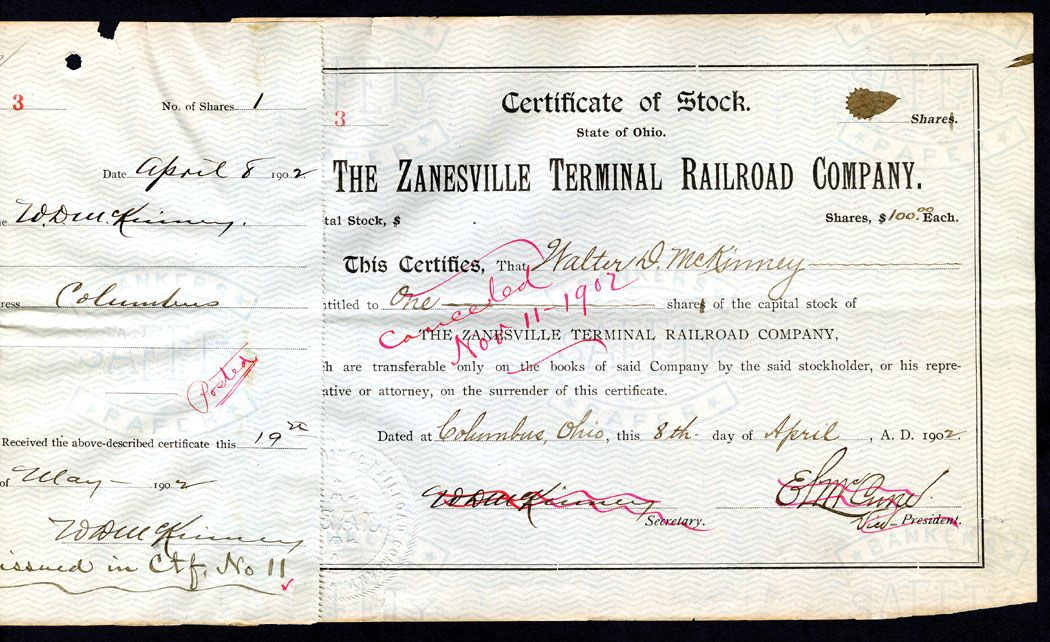 3
No. of Shares 1
Date April 8 1902
W.D. McKinney.
ress Columbus
Posted
Received the above-described certificate this 19th
of May 1902
W D McKinney
issued in Ctf. No 11
3
Certificate of Stock.
State of Ohio.
Shares.
THE ZANESVILLE TERMINAL RAILROAD COMPANY.
tal Stock, $
Shares, $100.00 Each.
This Certifies, That Walter D. McKinney
ntitled to One shares of the capital stock of
Canceled
Nov 11-1902
THE ZANESVILLE TERMINAL RAILROAD COMPANY,
h are transferable only on the books of said Company by the said stockholder, or his repre-
ative or attorney, on the surrender of this certificate.
Dated at Columbus, Ohio, this 8th day of April, A. D. 1902.
W D McKinney
Secretary.
Vice-President.
BANKERS
SAFETY
PAPER